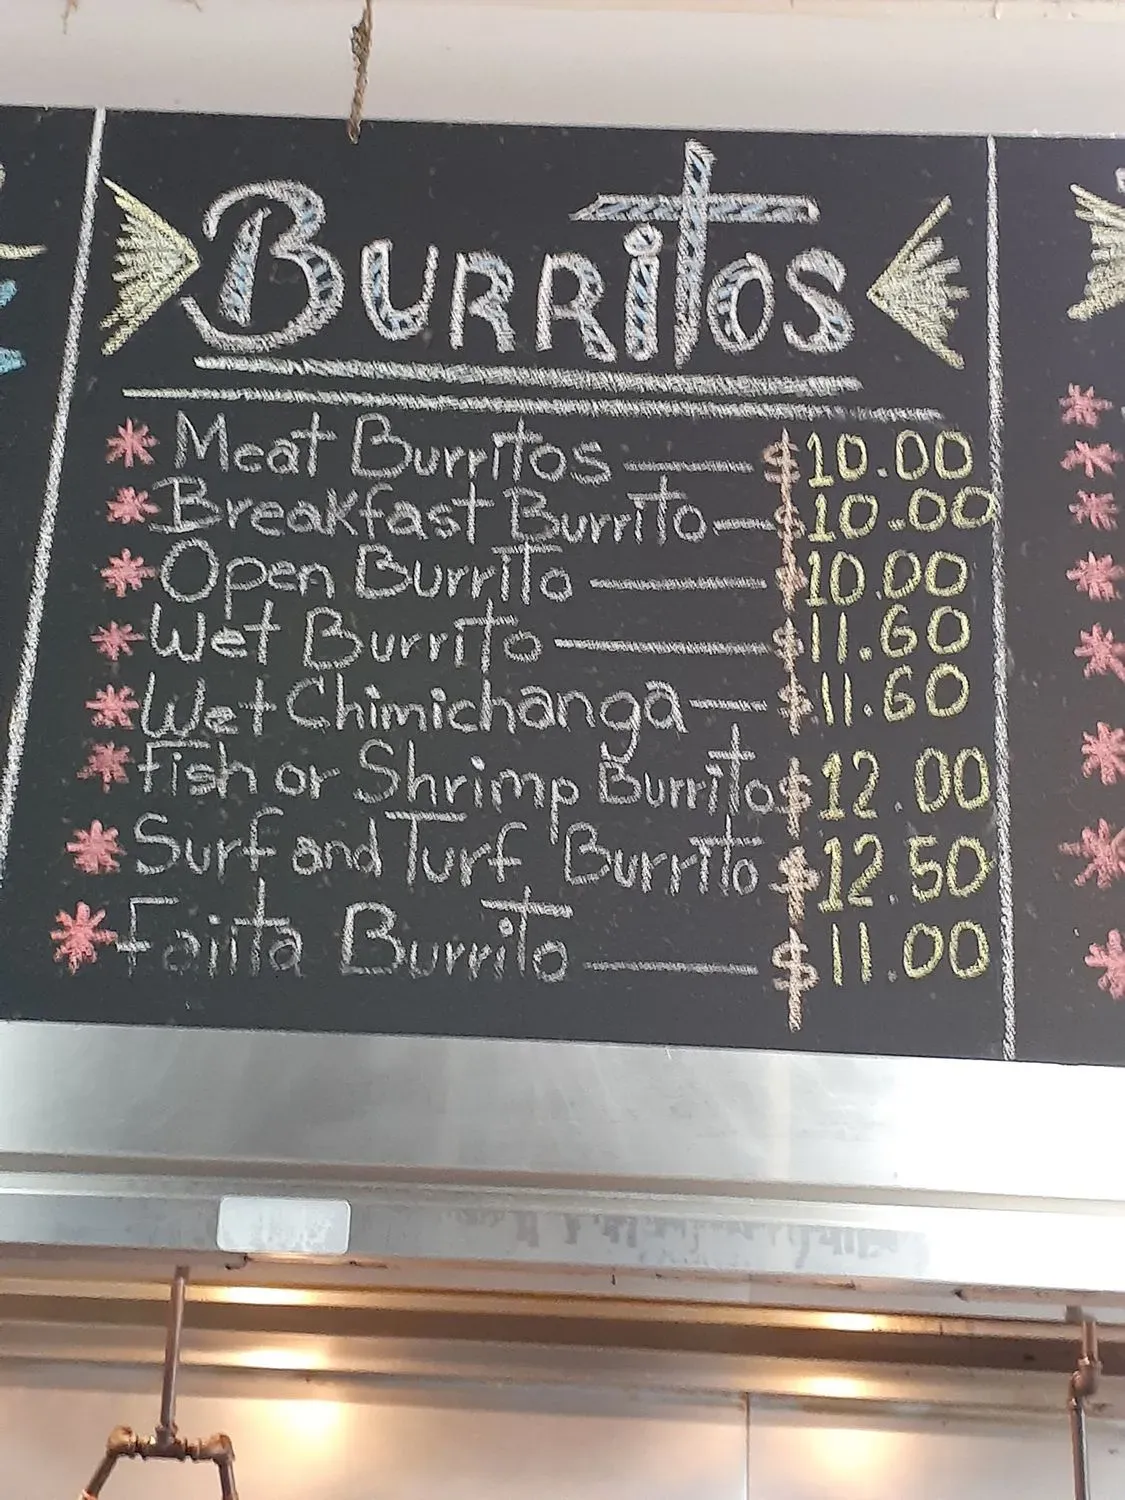 Burritos
* Meat Burritos — $10.00
* Breakfast Burrito — $10.00
* Open Burrito — $10.00
* Wet Burrito — $11.60
* Wet Chimichanga — $11.60
* Fish or Shrimp Burritos $12.00
* Surf and Turf Burrito $12.50
* Fajita Burrito — $11.00